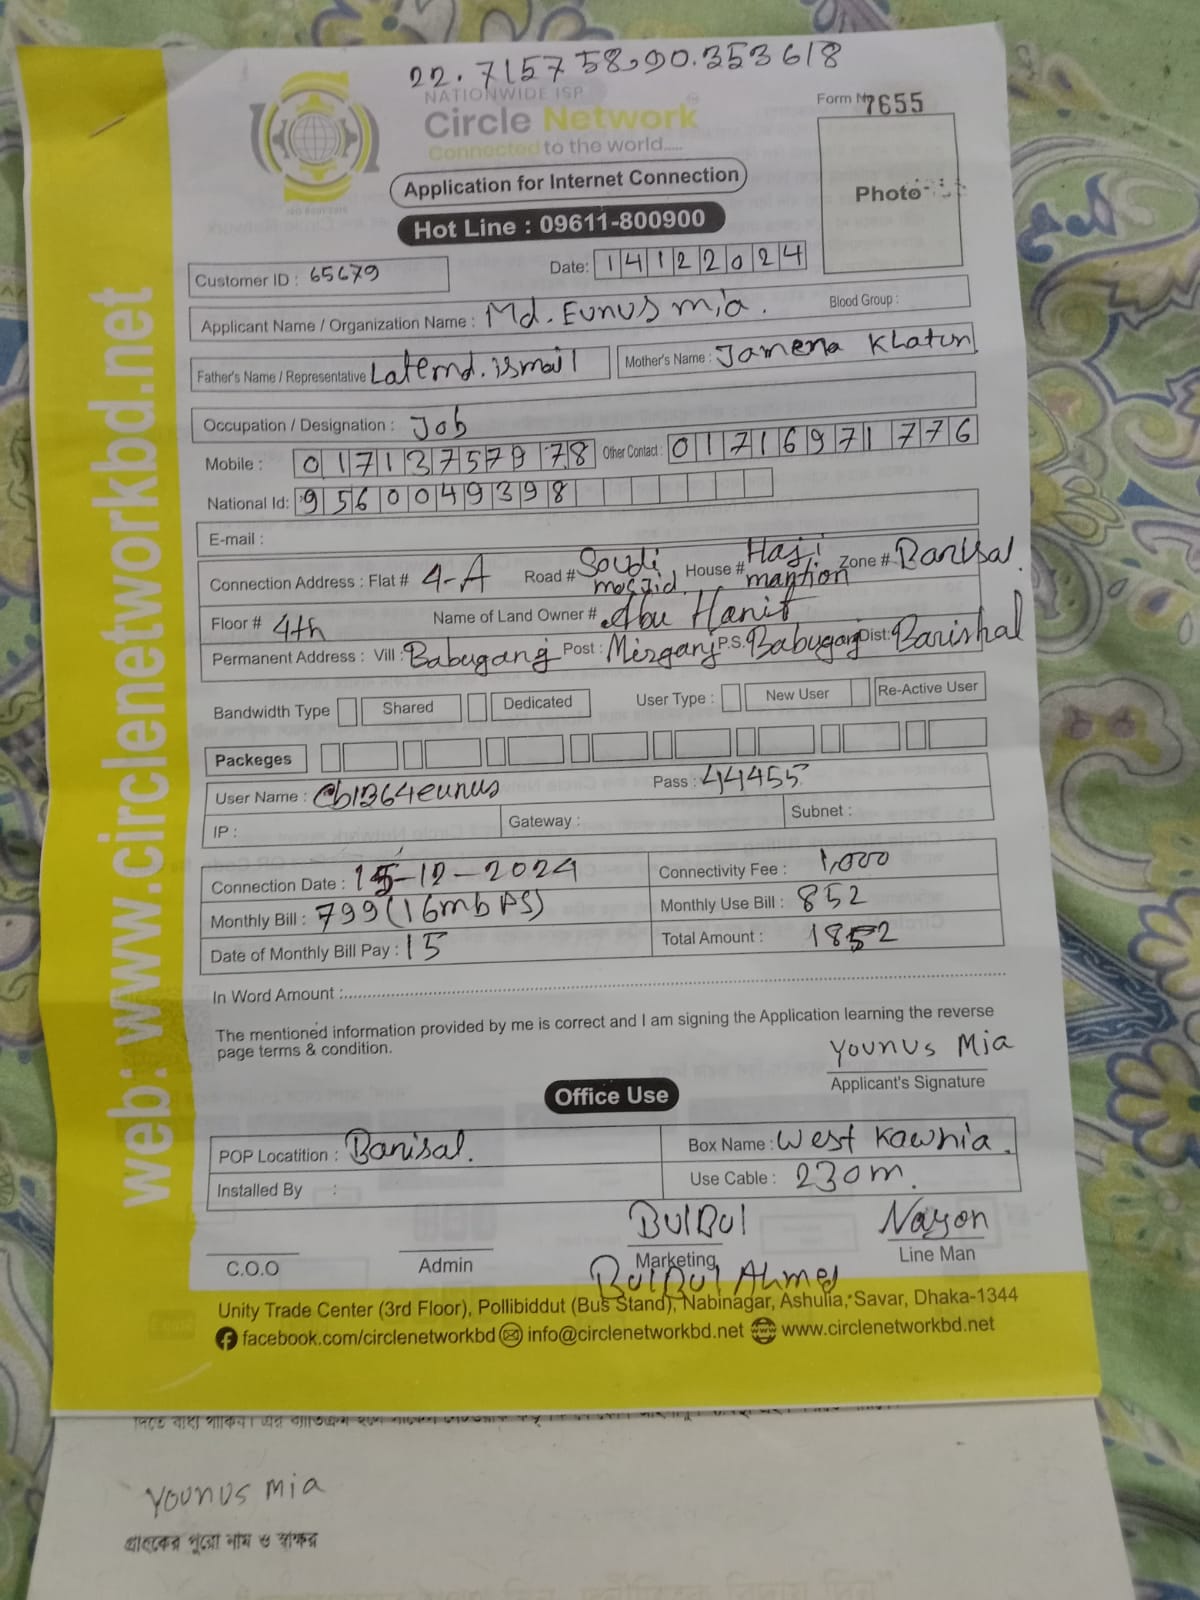 22.715758,90.353618
NATIONWIDE ISP
Circle Network
Connected to the world.....
Form No 7655
Application for Internet Connection
Photo
Hot Line : 09611-800900
Customer ID : 65679
Date: 14122024
Applicant Name / Organization Name : Md. Eunus mia. Blood Group :
Father's Name / Representative Late md. ismail Mother's Name : Jamena Khatun
Occupation / Designation : Job
Mobile : 01713757978 Other Contact : 01716971776
National Id: 9560049398
E-mail :
Connection Address : Flat # 4-A Road # Soudi mosjid House # Haji mantion Zone # Barisal.
Floor # 4th Name of Land Owner # Abu Hanif
Permanent Address : Vill : Babugang Post : Mirganj P.S. Babuganj Dist: Barishal
Bandwidth Type Shared Dedicated User Type : New User Re-Active User
Packeges
User Name : cb1364eunus Pass : 44455
IP : Gateway : Subnet :
Connection Date : 15-12-2024 Connectivity Fee : 1,000
Monthly Bill : 799 (16mbps) Monthly Use Bill : 852
Date of Monthly Bill Pay : 15 Total Amount : 1852
In Word Amount :
The mentioned information provided by me is correct and I am signing the Application learning the reverse
page terms & condition.
Younus Mia
Applicant's Signature
Office Use
POP Locatition : Barisal. Box Name : West Kawnia.
Installed By : Use Cable : 230m.
BulBul Nayon
C.O.O Admin Marketing Line Man
BulBul Ahmed
Unity Trade Center (3rd Floor), Pollibiddut (Bus Stand), Nabinagar, Ashulia, Savar, Dhaka-1344
facebook.com/circlenetworkbd info@circlenetworkbd.net www.circlenetworkbd.net
web: www.circlenetworkbd.net
Younus Mia
গ্রাহকের পুরো নাম ও স্বাক্ষর